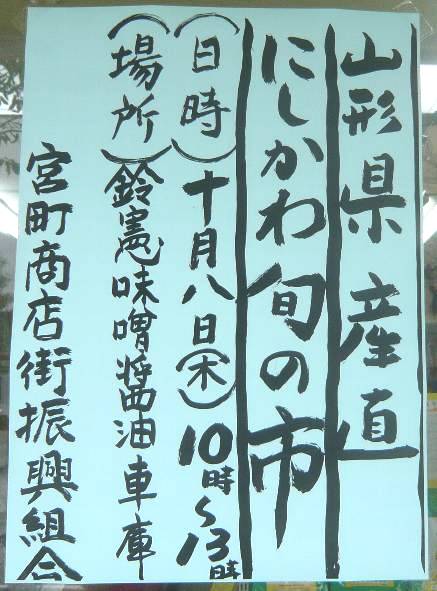 山形県産直
にしかわ旬の市
(日時)十月八日(木)10時~13時
(場所)鈴憲味噌醤油車庫
宮町商店街振興組合